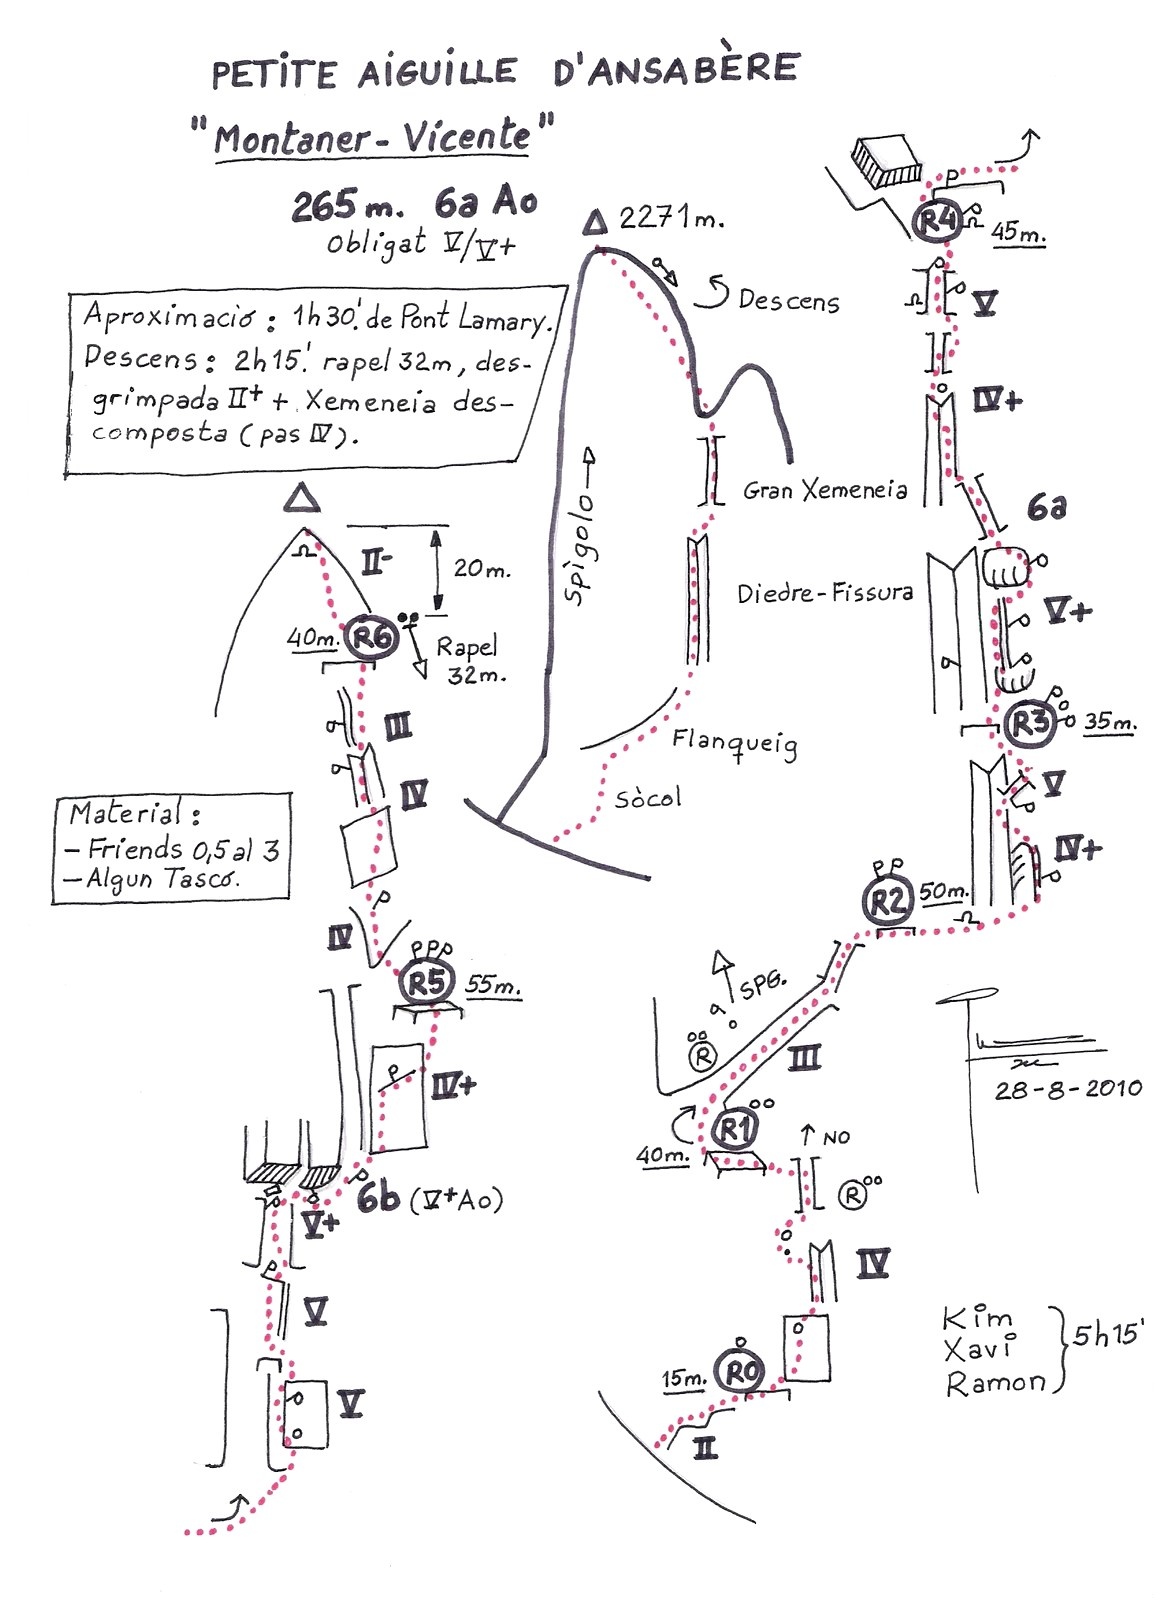 PETITE AIGUILLE D'ANSABÈRE
"Montaner-Vicente"
265m. 6a Ao
obligat V/V+
Aproximació: 1h30'. de Pont Lamary.
Descens: 2h15'. rapel 32m, des-
grimpada II+ + Xemeneia des-
composta (pas IV).
2271m.
Descens
Spigolo →
Gran Xemeneia
Diedre-Fissura
Flanqueig
Sòcol
II-
20m.
40m.
R6
Rapel
32m.
III
IV
Material:
- Friends 0,5 al 3
- Algun Tascó.
IV
R5
55m.
IV+
6b (V+Ao)
V+
V
V
R4
45m.
V
IV+
6a
V+
R3
35m.
V
IV+
R2
50m.
SPG.
R
III
R1
40m.
NO
R
IV
R0
15m.
II
28-8-2010
Kim
Xavi
Ramon
5h15'